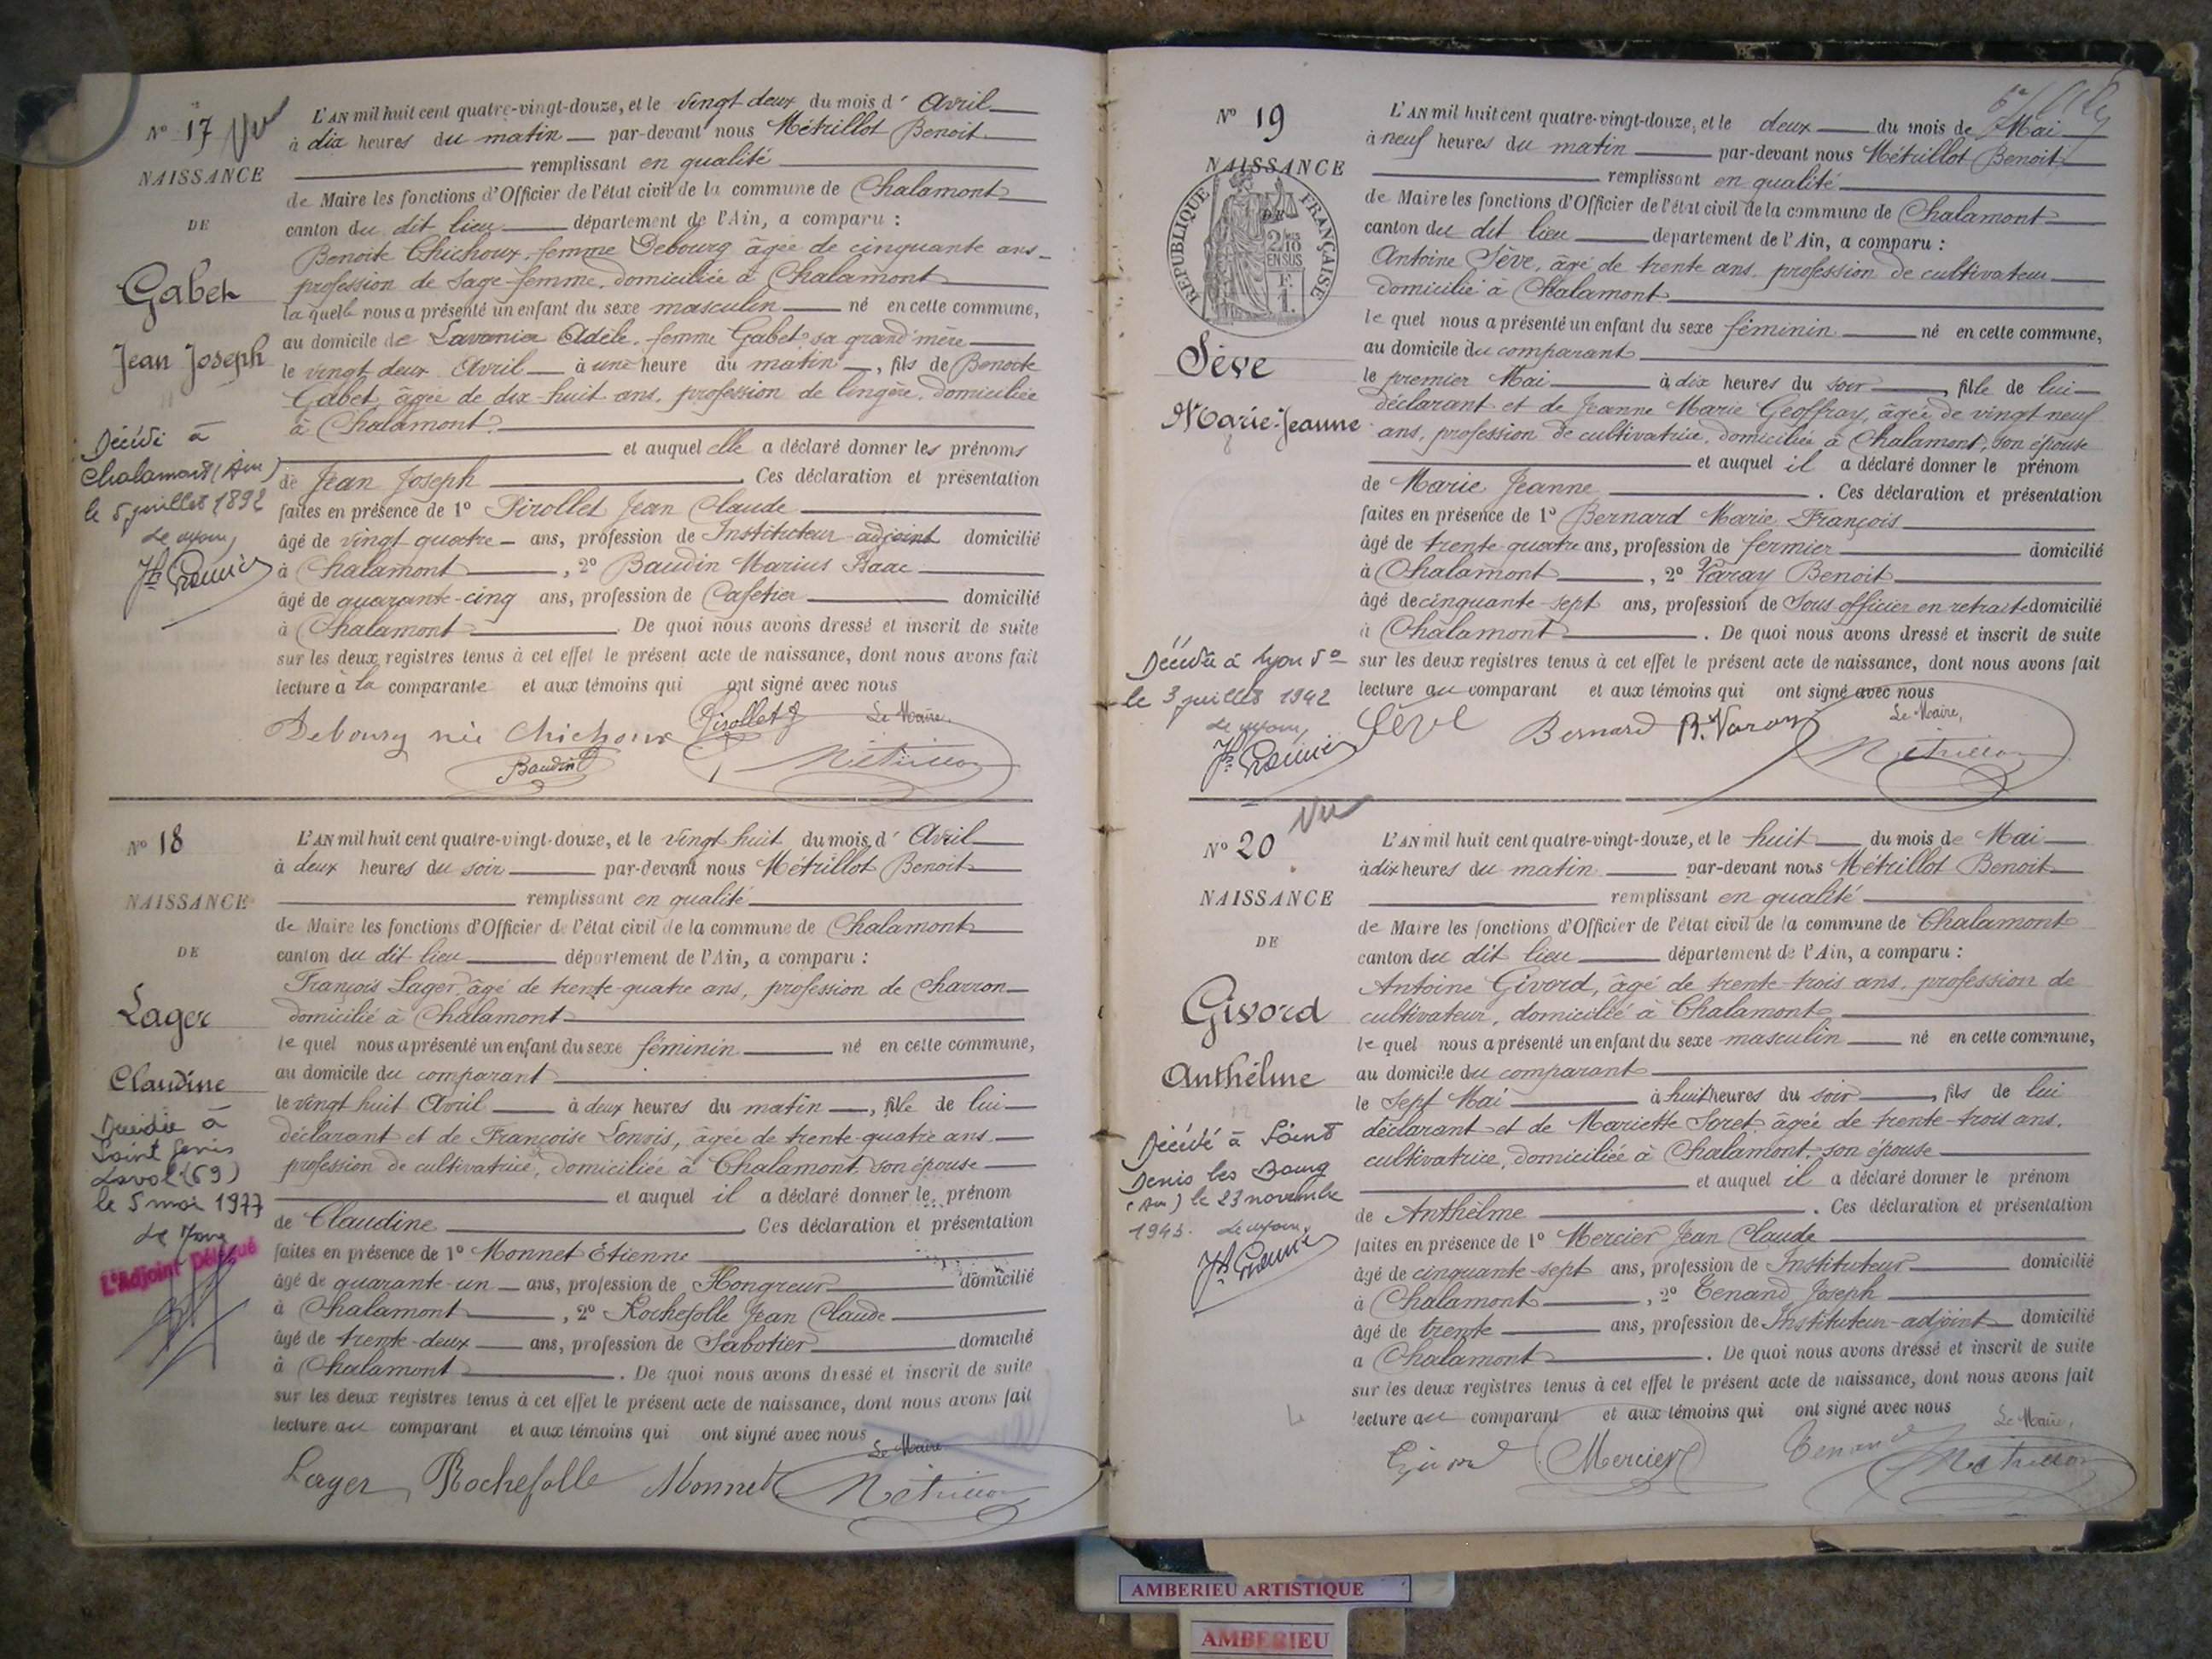 N° 17 Vu
NAISSANCE
DE
Gabet
Jean Joseph
Décédé à
Chalamont (Ain)
le 5 juillet 1892
Le Maire,
L'AN mil huit cent quatre-vingt-douze, et le vingt deux du mois d' Avril
à dix heures du matin par-devant nous Métrillot Benoit
remplissant en qualité
de Maire les fonctions d'Officier de l'état civil de la commune de Chalamont
canton du dit lieu département de l'Ain, a comparu :
Benoite Chichoux, femme Debourg âgée de cinquante ans
profession de Sage-femme, domiciliée à Chalamont
la quelle nous a présenté un enfant du sexe masculin né en cette commune,
au domicile de Lavania Adèle, femme Gabet, sa grand'mère
le vingt deux Avril à une heure du matin, fils de Benoite
Gabet, âgée de dix-huit ans, profession de lingère, domiciliée
à Chalamont.
et auquel elle a déclaré donner les prénoms
de Jean Joseph. Ces déclaration et présentation
faites en présence de 1° Pirollet Jean Claude
âgé de vingt quatre ans, profession de Instituteur adjoint domicilié
à Chalamont, 2° Baudin Marius Isaac
âgé de quarante-cinq ans, profession de Cafetier domicilié
à Chalamont De quoi nous avons dressé et inscrit de suite
sur les deux registres tenus à cet effet le présent acte de naissance, dont nous avons fait
lecture à la comparante et aux témoins qui ont signé avec nous
Debourg née Chichoux Pirollet J Le Maire,
Baudin Métrillot
N° 18
NAISSANCE
DE
Lager
Claudine
Décédée à
Saint Genis
Laval (69)
le 5 mai 1977
Le Maire
L'Adjoint Délégué
L'AN mil huit cent quatre-vingt-douze, et le vingt huit du mois d' Avril
à deux heures du soir par-devant nous Métrillot Benoit
remplissant en qualité
de Maire les fonctions d'Officier de l'état civil de la commune de Chalamont
canton du dit lieu département de l'Ain, a comparu :
François Lager, âgé de trente-quatre ans, profession de Charron
domicilié à Chalamont
le quel nous a présenté un enfant du sexe féminin né en cette commune,
au domicile du comparant
le vingt huit Avril à deux heures du matin, fille de lui
déclarant et de Françoise, âgée de trente-quatre ans
profession de cultivatrice, domiciliée à Chalamont, son épouse
et auquel il a déclaré donner le prénom
de Claudine. Ces déclaration et présentation
faites en présence de 1° Monnet Etienne
âgé de quarante-un ans, profession de Hongreur domicilié
à Chalamont, 2° Rochefolle Jean Claude
âgé de trente-deux ans, profession de Sabotier domicilié
à Chalamont. De quoi nous avons dressé et inscrit de suite
sur les deux registres tenus à cet effet le présent acte de naissance, dont nous avons fait
lecture au comparant et aux témoins qui ont signé avec nous
Le Maire
Lager Rochefolle Monnet Métrillot
N° 19
NAISSANCE
DE
REPUBLIQUE FRANÇAISE
2/10 EN SUS
F. 1.
Sève
Marie-Jeanne
Décédée à Lyon 5e
le 3 juillet 1942
Le Maire,
L'AN mil huit cent quatre-vingt-douze, et le deux du mois de Mai
à neuf heures du matin par-devant nous Métrillot Benoit
remplissant en qualité
de Maire les fonctions d'Officier de l'état civil de la commune de Chalamont
canton du dit lieu département de l'Ain, a comparu :
Antoine Sève, âgé de trente ans, profession de cultivateur
domicilié à Chalamont
le quel nous a présenté un enfant du sexe féminin né en cette commune,
au domicile du comparant
le premier Mai à dix heures du soir, fille de lui
déclarant et de Jeanne Marie Geoffray, âgée de vingt neuf
ans, profession de cultivatrice, domiciliée à Chalamont, son épouse
et auquel il a déclaré donner le prénom
de Marie Jeanne. Ces déclaration et présentation
faites en présence de 1° Bernard Marie François
âgé de trente-quatre ans, profession de fermier domicilié
à Chalamont, 2° Varay Benoit
âgé de cinquante-sept ans, profession de Sous officier en retraite domicilié
à Chalamont. De quoi nous avons dressé et inscrit de suite
sur les deux registres tenus à cet effet le présent acte de naissance, dont nous avons fait
lecture au comparant et aux témoins qui ont signé avec nous
Sève Bernard B. Varay Le Maire,
Métrillot
Vu
N° 20
NAISSANCE
DE
Givord
Anthelme
Décédé à Saint
Denis les Bourg
(Ain) le 23 novembre
1943. Le Maire,
L'AN mil huit cent quatre-vingt-douze, et le huit du mois de Mai
à dix heures du matin par-devant nous Métrillot Benoit
remplissant en qualité
de Maire les fonctions d'Officier de l'état civil de la commune de Chalamont
canton du dit lieu département de l'Ain, a comparu :
Antoine Givord, âgé de trente-trois ans, profession de
cultivateur, domicilié à Chalamont
le quel nous a présenté un enfant du sexe masculin né en cette commune,
au domicile du comparant
le Sept Mai à huit heures du soir, fils de lui
déclarant et de Mariette Soret âgée de trente-trois ans,
cultivatrice, domiciliée à Chalamont, son épouse
et auquel il a déclaré donner le prénom
de Anthelme. Ces déclaration et présentation
faites en présence de 1° Mercier Jean Claude
âgé de cinquante-sept ans, profession de Instituteur domicilié
à Chalamont, 2° Tenand Joseph
âgé de trente ans, profession de Instituteur-adjoint domicilié
à Chalamont. De quoi nous avons dressé et inscrit de suite
sur les deux registres tenus à cet effet le présent acte de naissance, dont nous avons fait
lecture au comparant et aux témoins qui ont signé avec nous
Le Maire,
Givord Mercier Tenand Métrillot
AMBERIEU ARTISTIQUE
AMBERIEU